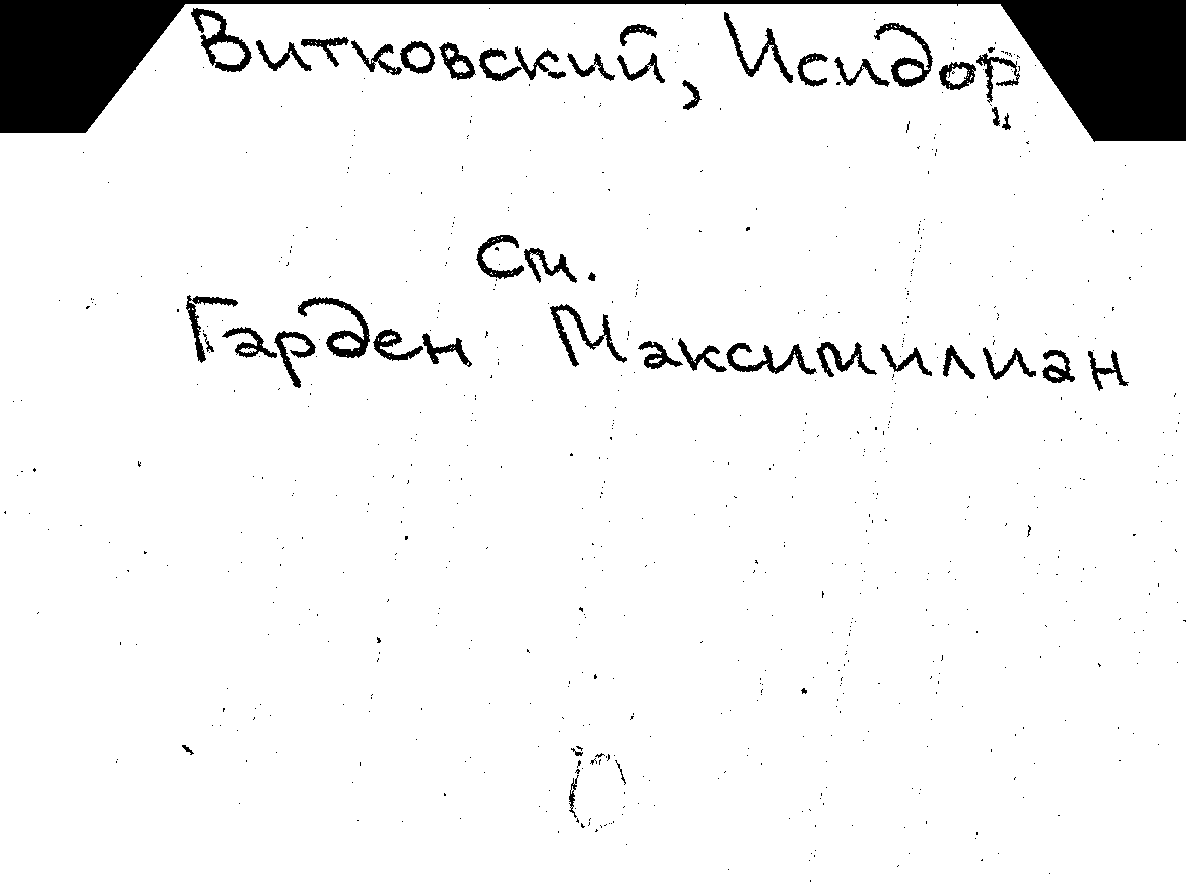 Витковский, Исидор
См.
Гарден Максимилиан